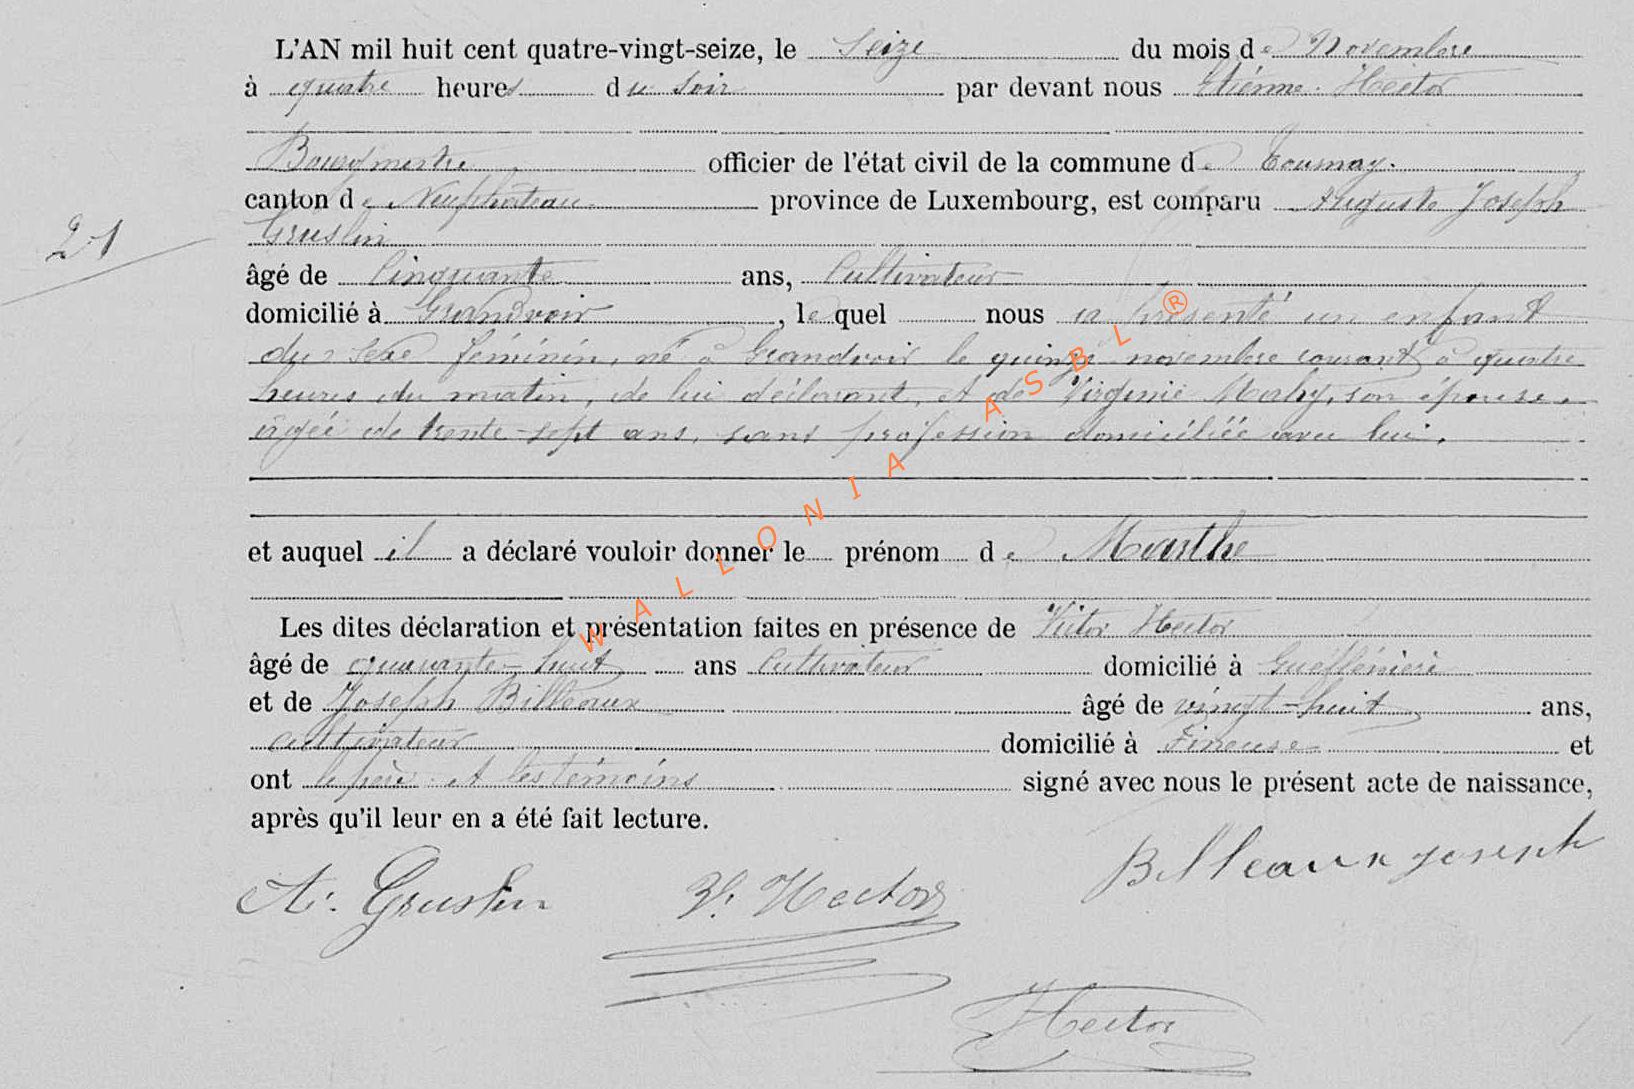 L'AN mil huit cent quatre-vingt-seize, le Seize du mois de Novembre
à quatre heures du soir par devant nous Etienne Hector
Bourgmestre officier de l'état civil de la commune de Tournay.
canton de Neufchâteau province de Luxembourg, est comparu Auguste Joseph
21
Gruslin
âgé de Cinquante ans, Cultivateur
domicilié à Grandvoir, le quel nous a présenté un enfant
du sexe féminin, né à Grandvoir le quinze novembre courant à quatre
heures du matin, de lui déclarant, et de Virginie Mahy, son épouse
âgée de trente-sept ans, sans profession domiciliée avec lui.
et auquel il a déclaré vouloir donner le prénom de Marthe
Les dites déclaration et présentation faites en présence de Victor Hector
âgé de quarante-huit ans Cultivateur domicilié à
et de Joseph Billeaux âgé de vingt-huit ans,
cultivateur domicilié à Fineuse et
ont le père et les témoins signé avec nous le présent acte de naissance,
après qu'il leur en a été fait lecture.
A. Gruslin V. Hector Billeaux Joseph
Hector
WALLONIA ASBL ®